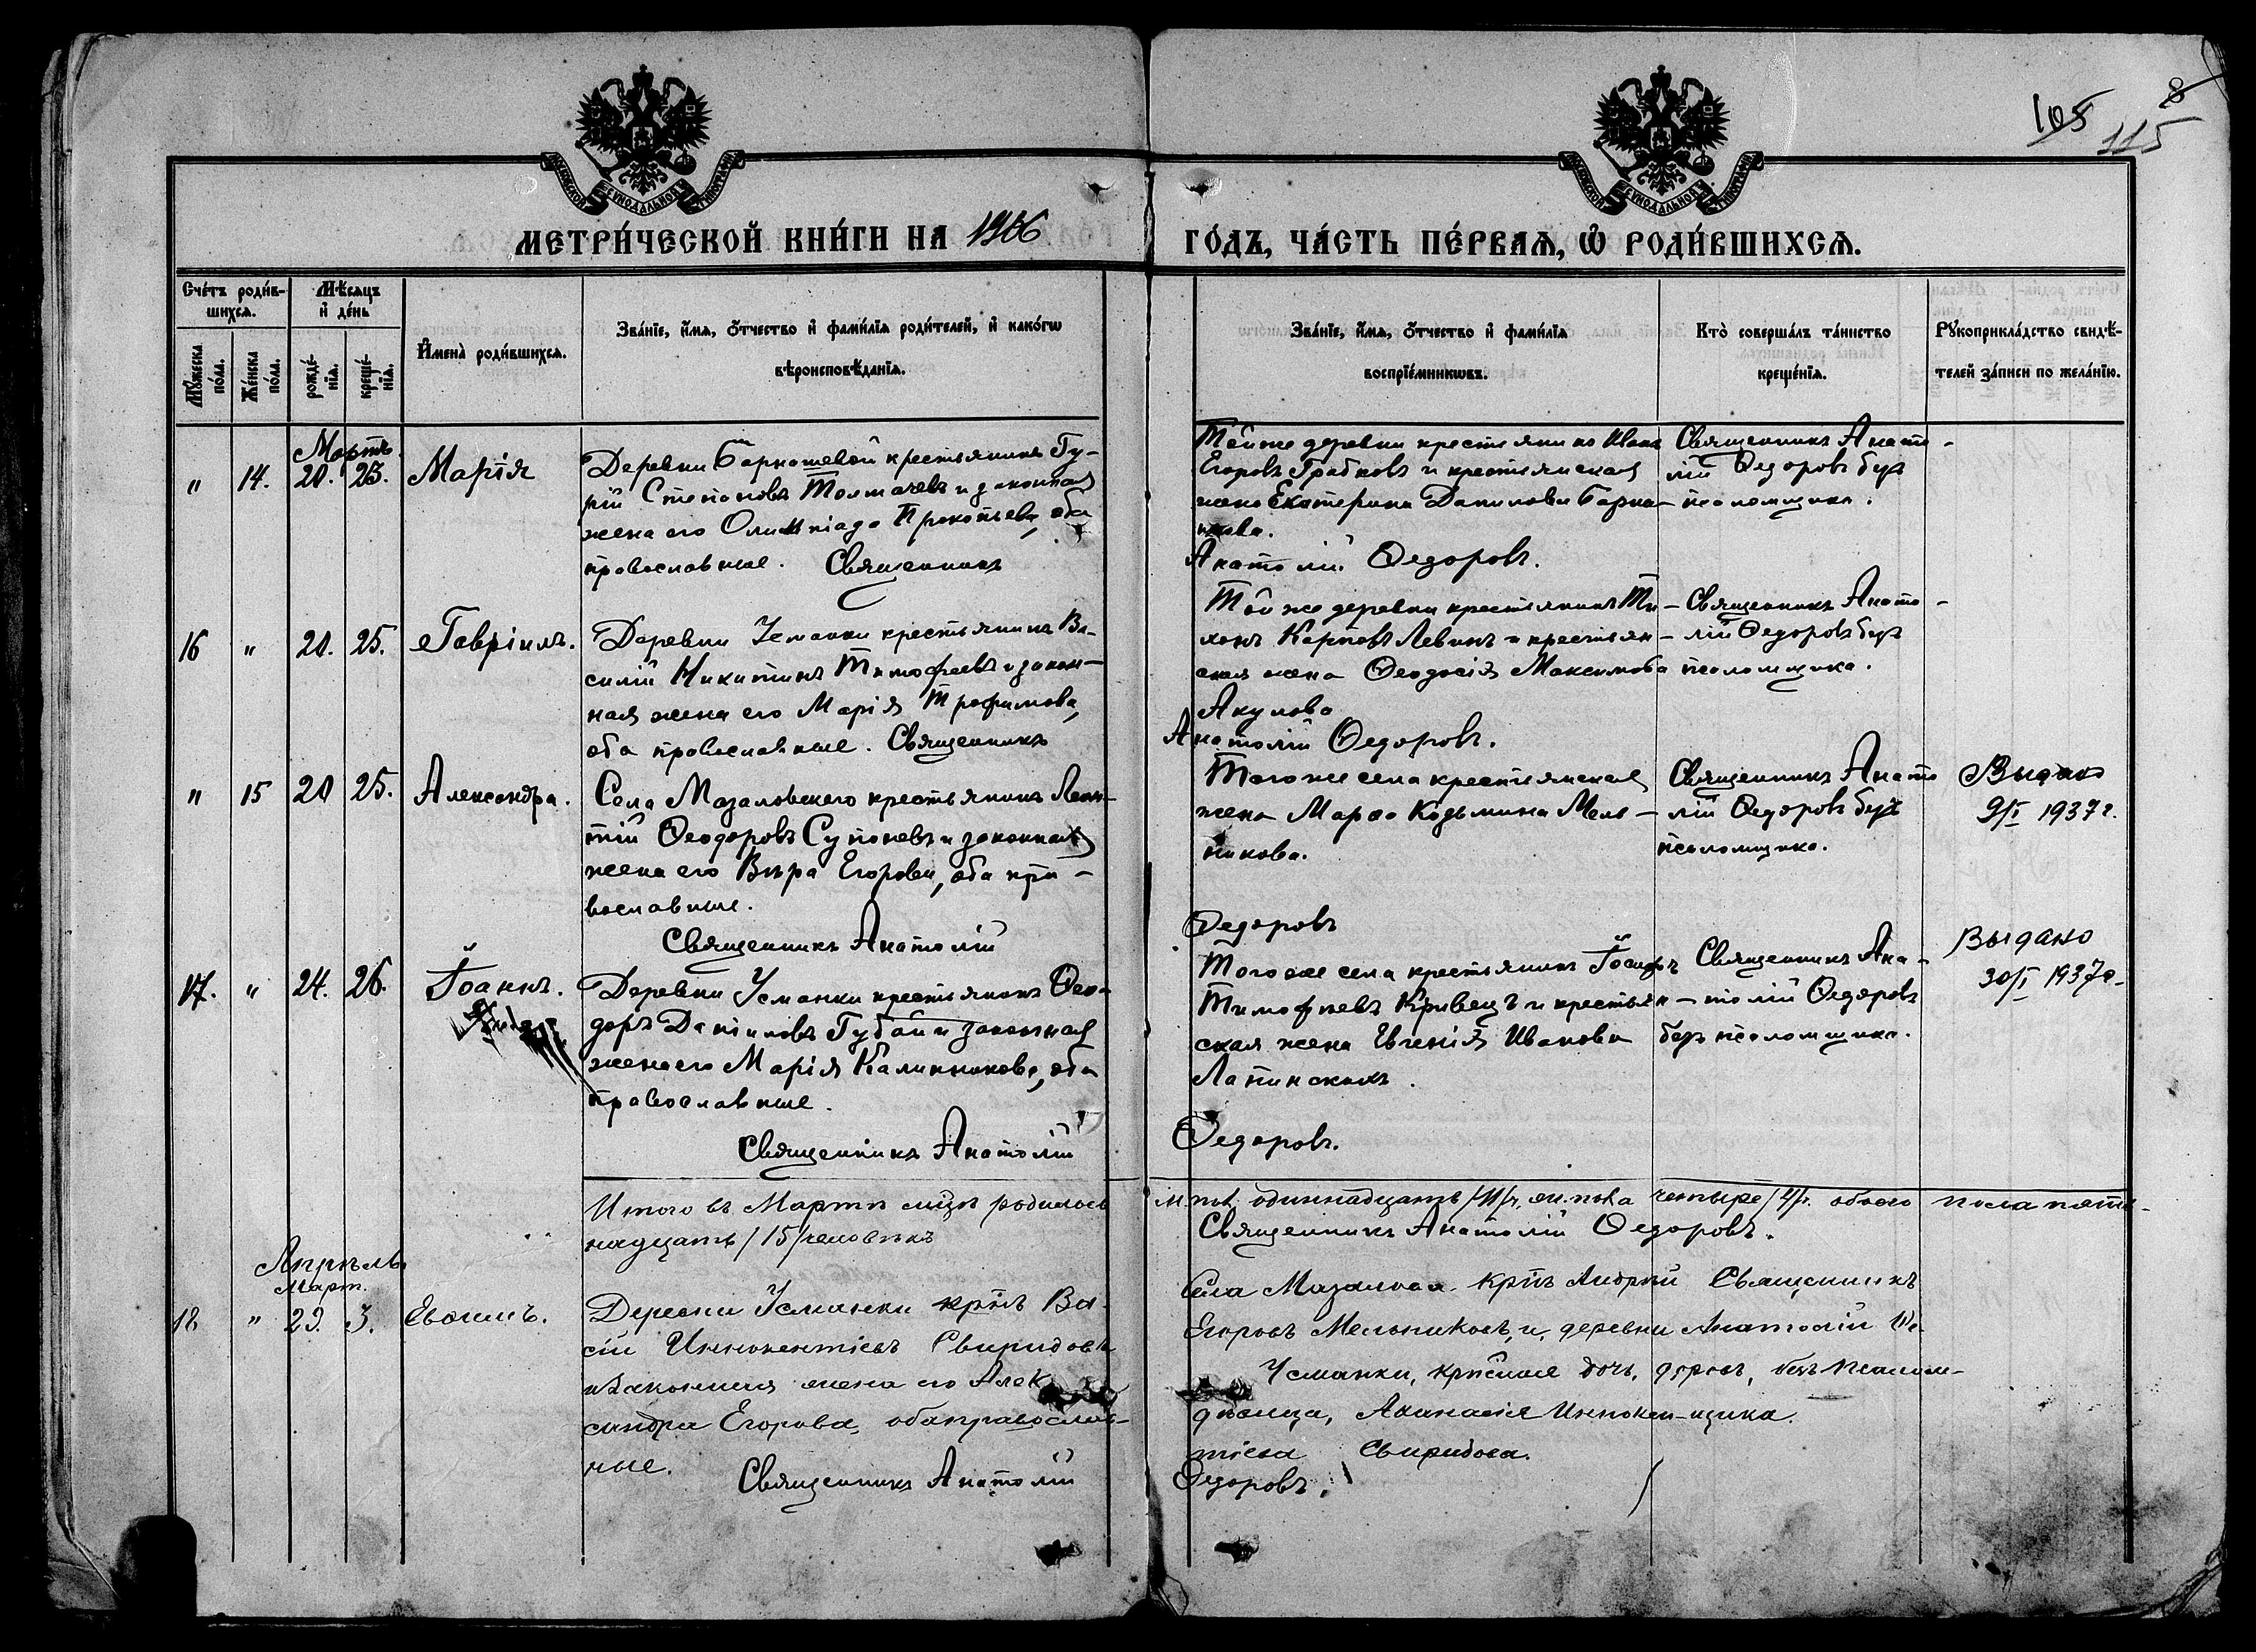 105
8
115
МОСКОВСКОЙ СѴНОДАЛЬНОЙ ТИПОГРАФІИ
МОСКОВСКОЙ СѴНОДАЛЬНОЙ ТИПОГРАФІИ
МЕТРИ́ЧЕСКОЙ КНИ́ГИ НА 1906
ГО́ДЪ, ЧА́СТЬ ПЕ́РВАѦ, Ѽ РОДИ́ВШИХСѦ.
Сче́тъ роди́в-
шихсѧ.
Мꙋ́жеска по́ла.
Же́нска по́ла.
Мѣ́сѧцъ
и҆ де́нь
рожде́-нїѧ.
креще́-нїѧ.
И҆мена̀ роди́вшихсѧ.
Зва́нїе, и҆́мѧ, ѻ҆́тчество и҆ фами́лїѧ роди́телей, и҆ како́гѡ
вѣроисповѣ́данїѧ.
Зва́нїе, и҆́мѧ, ѻ҆́тчество и҆ фами́лїѧ
воспрїе́мникѡвъ.
Кто̀ соверша́лъ та́инство
креще́нїѧ.
Рꙋкоприкла́дство свидѣ́-
телей за́писи по жела́нїю.
Мартъ.
" 14. 20. 25. Марія
Деревни Барнашевой крестьянинъ Гу-
рій Степановъ Толмачевъ и законная
жена его Олимпіада Прокопьева, оба
православные. Священникъ
Той же деревни крестьянинъ Иванъ
Егоровъ Грабковъ и крестьянская
жена Екатерина Данилова Барна-
шева.
Анатолій Ѳедоровъ.
Священникъ Анато-
лій Ѳедоровъ безъ
псаломщика.
16 " 20. 25. Гавріилъ.
Деревни Усманки крестьянинъ Ва-
силій Никитинъ Тимофеевъ и закон-
ная жена его Марія Трофимова,
оба православные. Священникъ
Той же деревни крестьянинъ Ти-
хонъ Карповъ Левинъ и крестьян-
ская жена Ѳеодосія Максимова
Акулова
Анатолій Ѳедоровъ.
Священникъ Анато-
лій Ѳедоровъ безъ
псаломщика.
" 15 20 25. Александра.
Села Мазаловскаго крестьянинъ Леон-
тій Ѳеодоровъ Супоневъ и законная
жена его Вѣра Егорова, оба пра-
вославные.
Священникъ Анатолій
Того же села крестьянская
жена Марѳа Козьмина Мель-
никова.
Ѳедоровъ
Священникъ Анато
лій Ѳедоровъ безъ
псаломщика.
Выдано
9/I 1937 г.
17. " 24. 26. Іоаннъ.
Деревни Усманки крестьянинъ Ѳео-
доръ Даніиловъ Губай и законная
жена его Марія Калинникова, оба
православные.
Священникъ Анатолій
Того же села крестьянинъ Іосифъ
Тимофѣевъ Кривецъ и крестьян-
ская жена Евгенія Иванова
Лапинскихъ.
Ѳедоровъ.
Священникъ Ана-
толій Ѳедоровъ
безъ псаломщика.
Выдано
30/I 1937 г.
Итого въ Мартѣ мцѣ родилось м. пола одиннадцать /11/, жен. пола четыре /4/, обоего пола пят-
надцать /15/ человѣкъ
Священникъ Анатолій Ѳедоровъ.
Апрѣль
Март.
18 " 29. 3. Евѳимъ.
Деревни Усманки кр҃нъ Ва-
сій Иннокентіевъ Свиридовъ
и законная жена его Алек
сандра Егорова, оба православ-
ные.
Священникъ Анатолій
Села Мазалова кр҃нъ Андрей
Егоровъ Мельниковъ, и, деревни
Усманки, крестьянс. дочь,
дѣвица, Аѳанасія Иннокен-
тіева Свиридова.
Ѳедоровъ.
Священникъ
Анатолій Ѳе-
доровъ, безъ псалом-
щика.